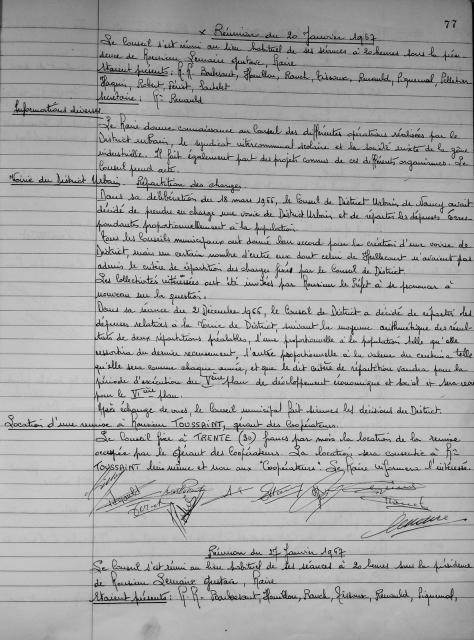 77
x Réunion du 20 Janvier 1967
Le Conseil s'est réuni au lieu habituel de ses séances à 20 heures sous la prési-
dence de Monsieur Lemaire Gustave, Maire
Etaient présents: M.M. Barbesant, Houillon, Rauch, Tissoux, Renauld, Piquemal, Pelletier
Haquin, Robert, Férét,
Secrétaire: Mr Renauld
Informations diverses
Le Maire donne connaissance au Conseil des différentes opérations réalisées par le
District urbain, le syndicat intercommunal scolaire et la société mixte de la zône
industrielle. Il fait également part des projets connus de ces différents organismes. Le
Conseil prend acte.
Voirie du District Urbain. Répartition des charges.
Dans sa délibération du 18 mars 1966, le Conseil de District Urbain de Nancy avait
décidé de prendre en charge une voirie de District Urbain et de répartir les dépenses corres-
pondantes proportionnellement à la population.
Tous les Conseils municipaux ont donné leur accord pour la création d'une voirie de
District, mais un certain nombre d'entre eux dont celui de Heillecourt n'avaient pas
admis le critère de répartition des charges fixés par le Conseil de District.
Les Collectivités intéressées ont été invitées par Monsieur le Préfet à se prononcer à
nouveau sur la question.
Dans sa séance du 2 Décembre 1966, le Conseil de District a décidé de répartir des
dépenses relatives à la Voirie de District, suivant la moyenne arithmétique des résul-
tats de deux répartitions préalables, l'une proportionnelle à la population telle qu'elle
ressortira du dernier recensement, l'autre proportionnelle à la valeur du centime telle
qu'elle sera connue chaque année, et que le dit critère de répartition vaudra pour la
période d'exécution du Vème plan de développement économique et social et sera revu
pour le VIème plan.
Après échange de vues, le Conseil municipal fait siennes les décisions du District.
Location d'une remise à Monsieur TOUSSAINT, gérant des Coopérateurs.
Le Conseil fixe à TRENTE (30) francs par mois la location de la remise
occupée par le Gérant des Coopérateurs. La location sera consentie à Mr
TOUSSAINT lui même et non aux "Coopérateurs". Le Maire informera l'intéressé.
Réunion du 27 Janvier 1967
Le Conseil s'est réuni au lieu habituel de ses séances à 20 heures sous la présidence
de Monsieur Lemaire Gustave, Maire
Etaient présents: M.M. Barbesant, Houillon, Rauch, Tissoux, Renauld, Piquemal,